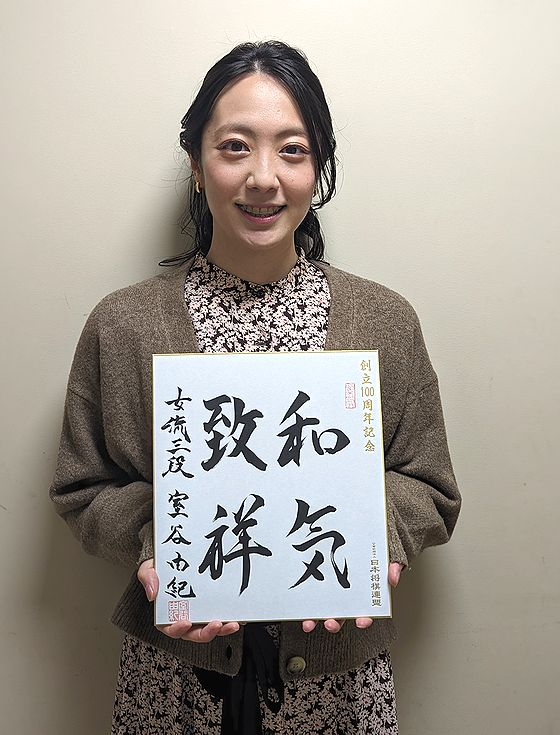 創立100周年記念
和気
致祥
女流三段 室谷由紀
日本将棋連盟